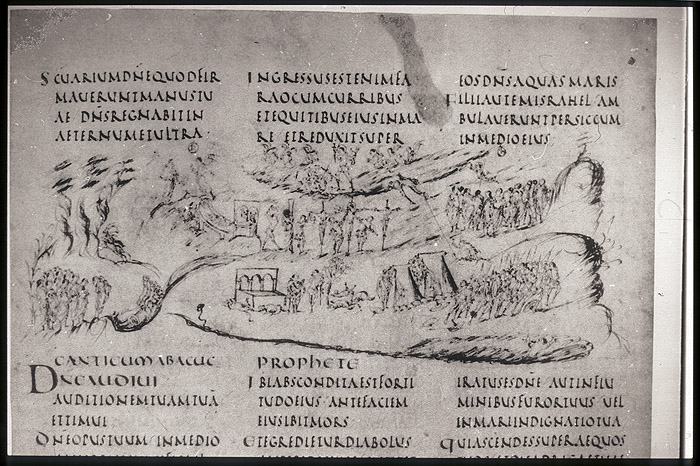 SCUARIUM DNE QUOD FIR
MAUERUNT MANUS TU
AE DNS REGNABIT IN
AETERNUM ET ULTRA
INGRESSUS EST ENIM FA
RAO CUM CURRIBUS
ET EQUITIBUS EIUS IN MA
RE ET REDUXIT SUPER
EOS DNS AQUAS MARIS
FILII AUTEM ISRAHEL AM
BULAUERUNT PER SICCUM
IN MEDIO EIUS
CANTICUM ABACUC PROPHETE
DNE AUDIUI
AUDITIONEM TUAM TUA
ET TIMUI
DNE OPUS TUUM IN MEDIO
IBI ABSCONDITA EST FORTI
TUDO EIUS ANTE FACIEM
EIUS IBIT MORS
ET EGREDIETUR DIABOLUS
IRATUS ES DNE AUT IN FLU
MINIBUS FUROR TUUS UEL
IN MARI INDIGNATIO TUA
QUI ASCENDES SUPER AEQUOS